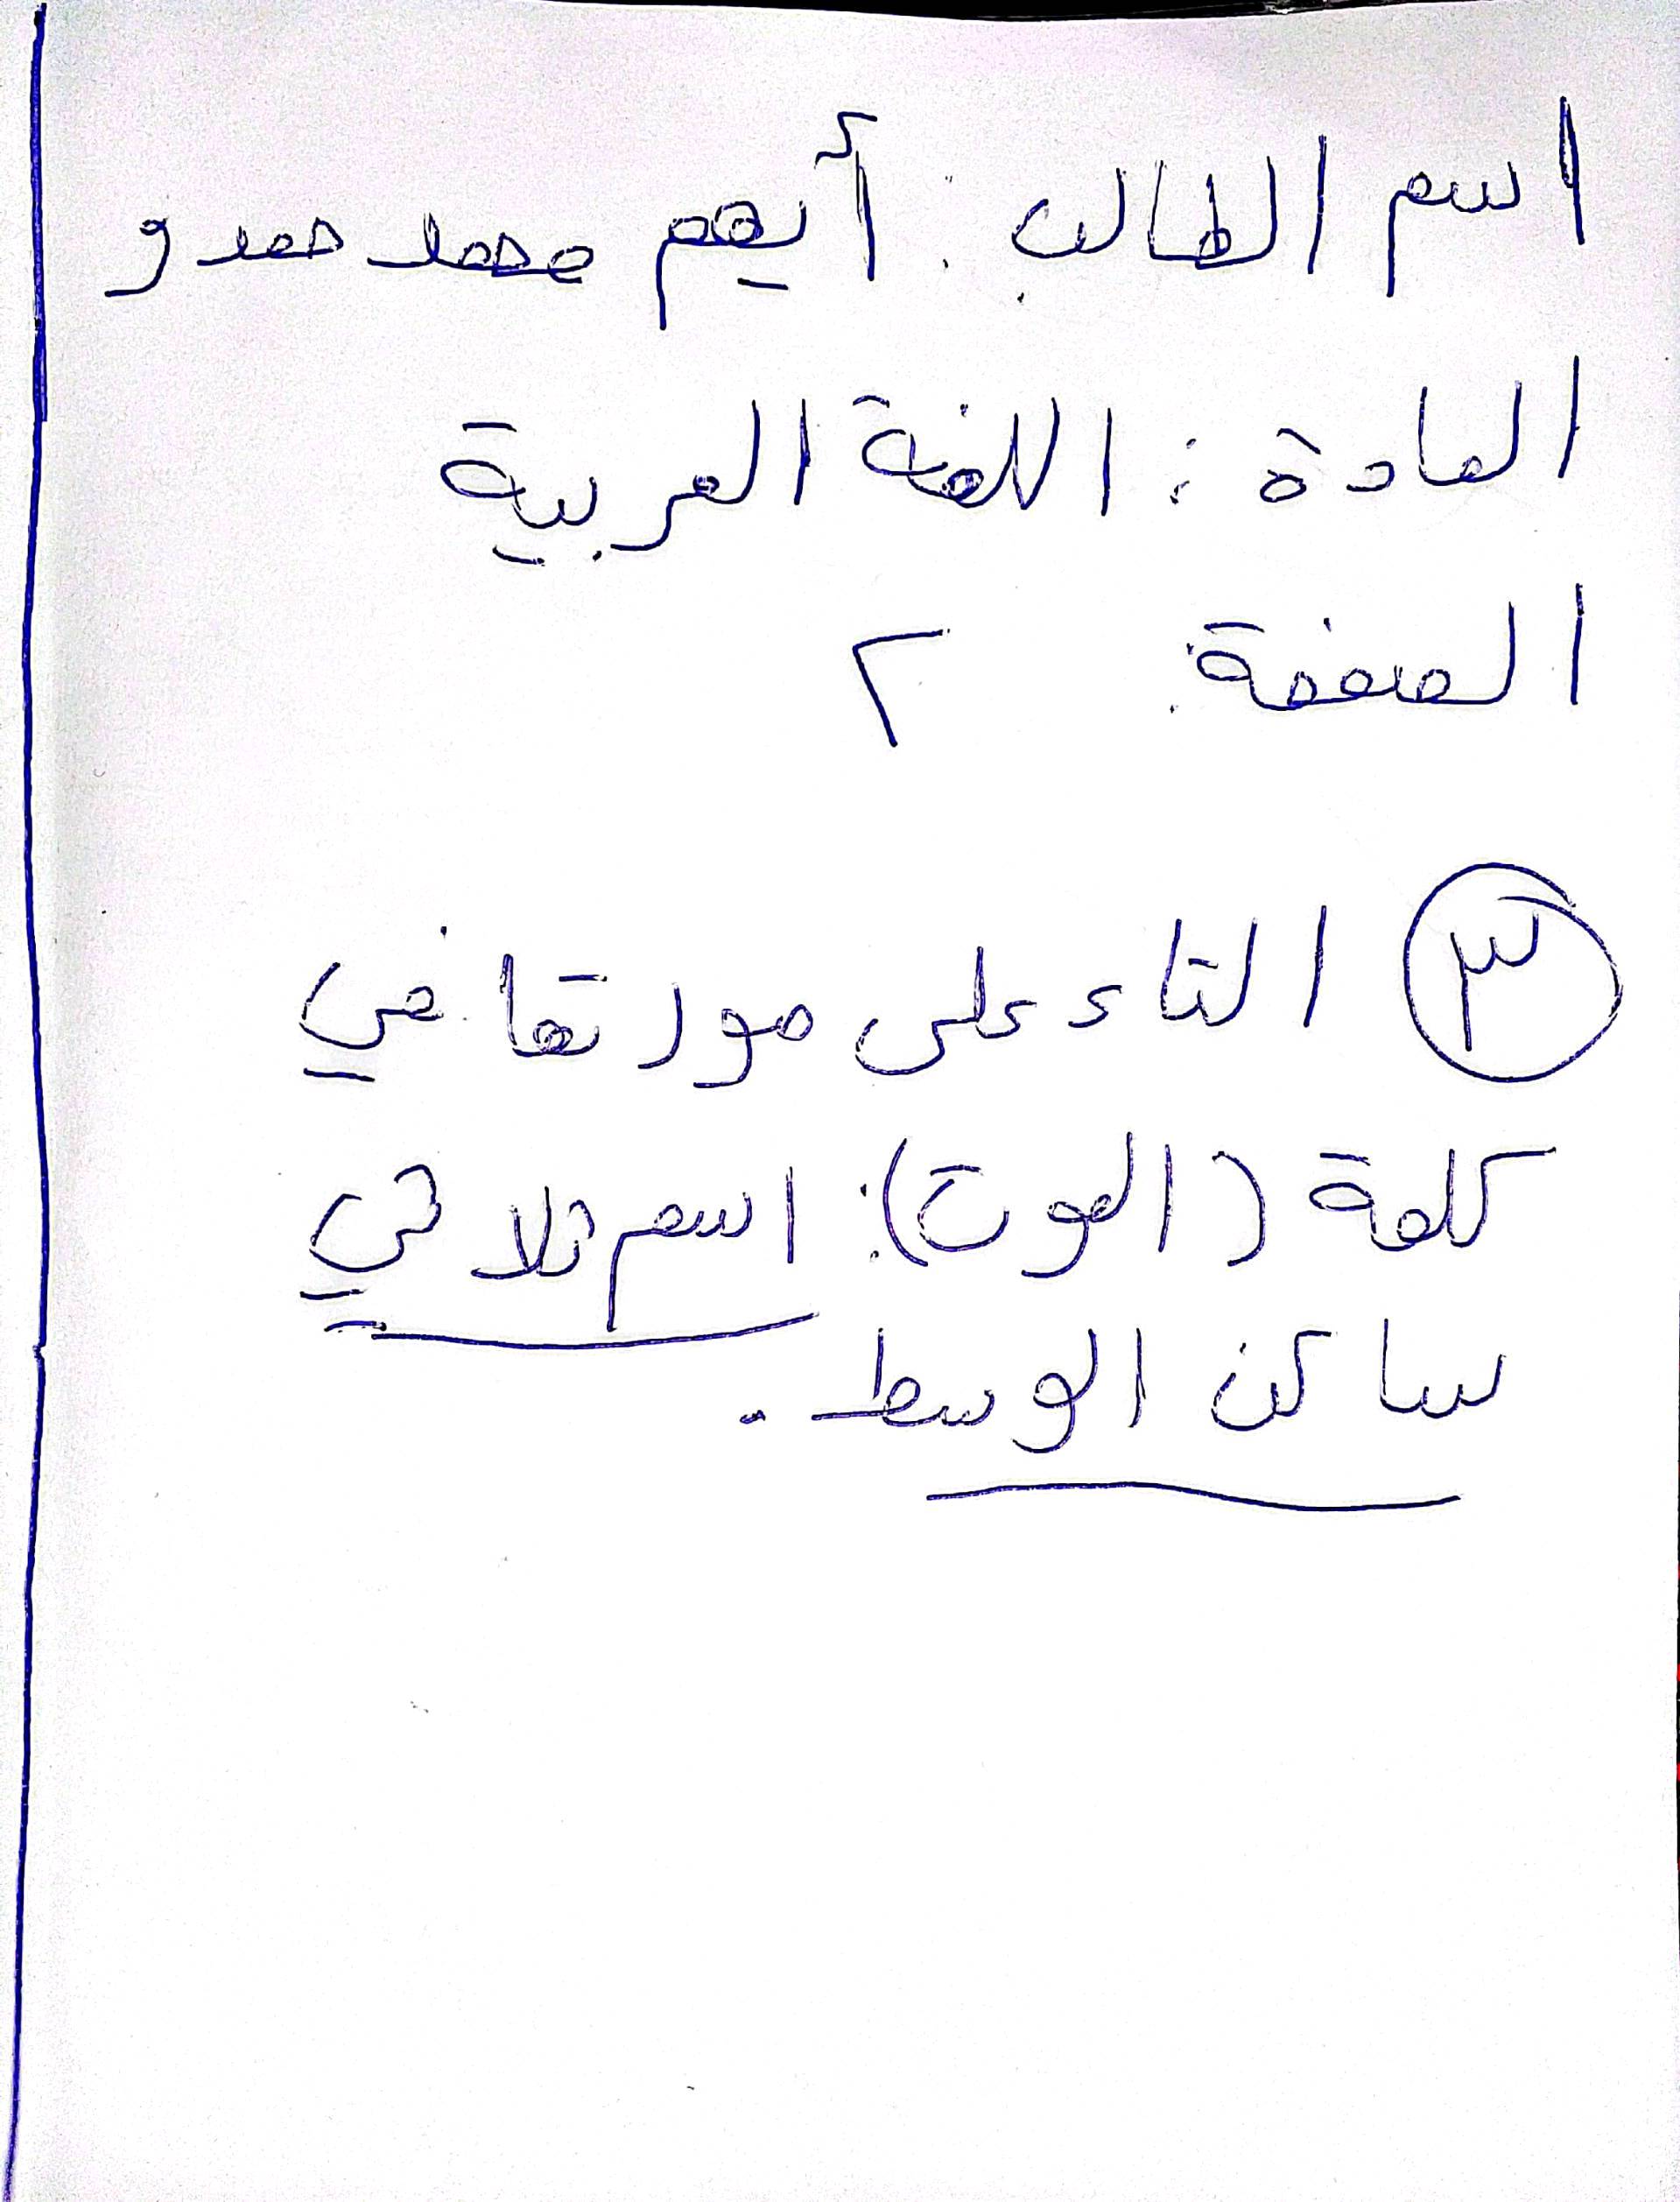 اسم الطالب: أيهم محمد حمدو
المادة: اللغة العربية
الصفحة: ٢
٣ التاء على صورتها في
كلمة (الموت): اسم ثلاثي
ساكن الوسط.